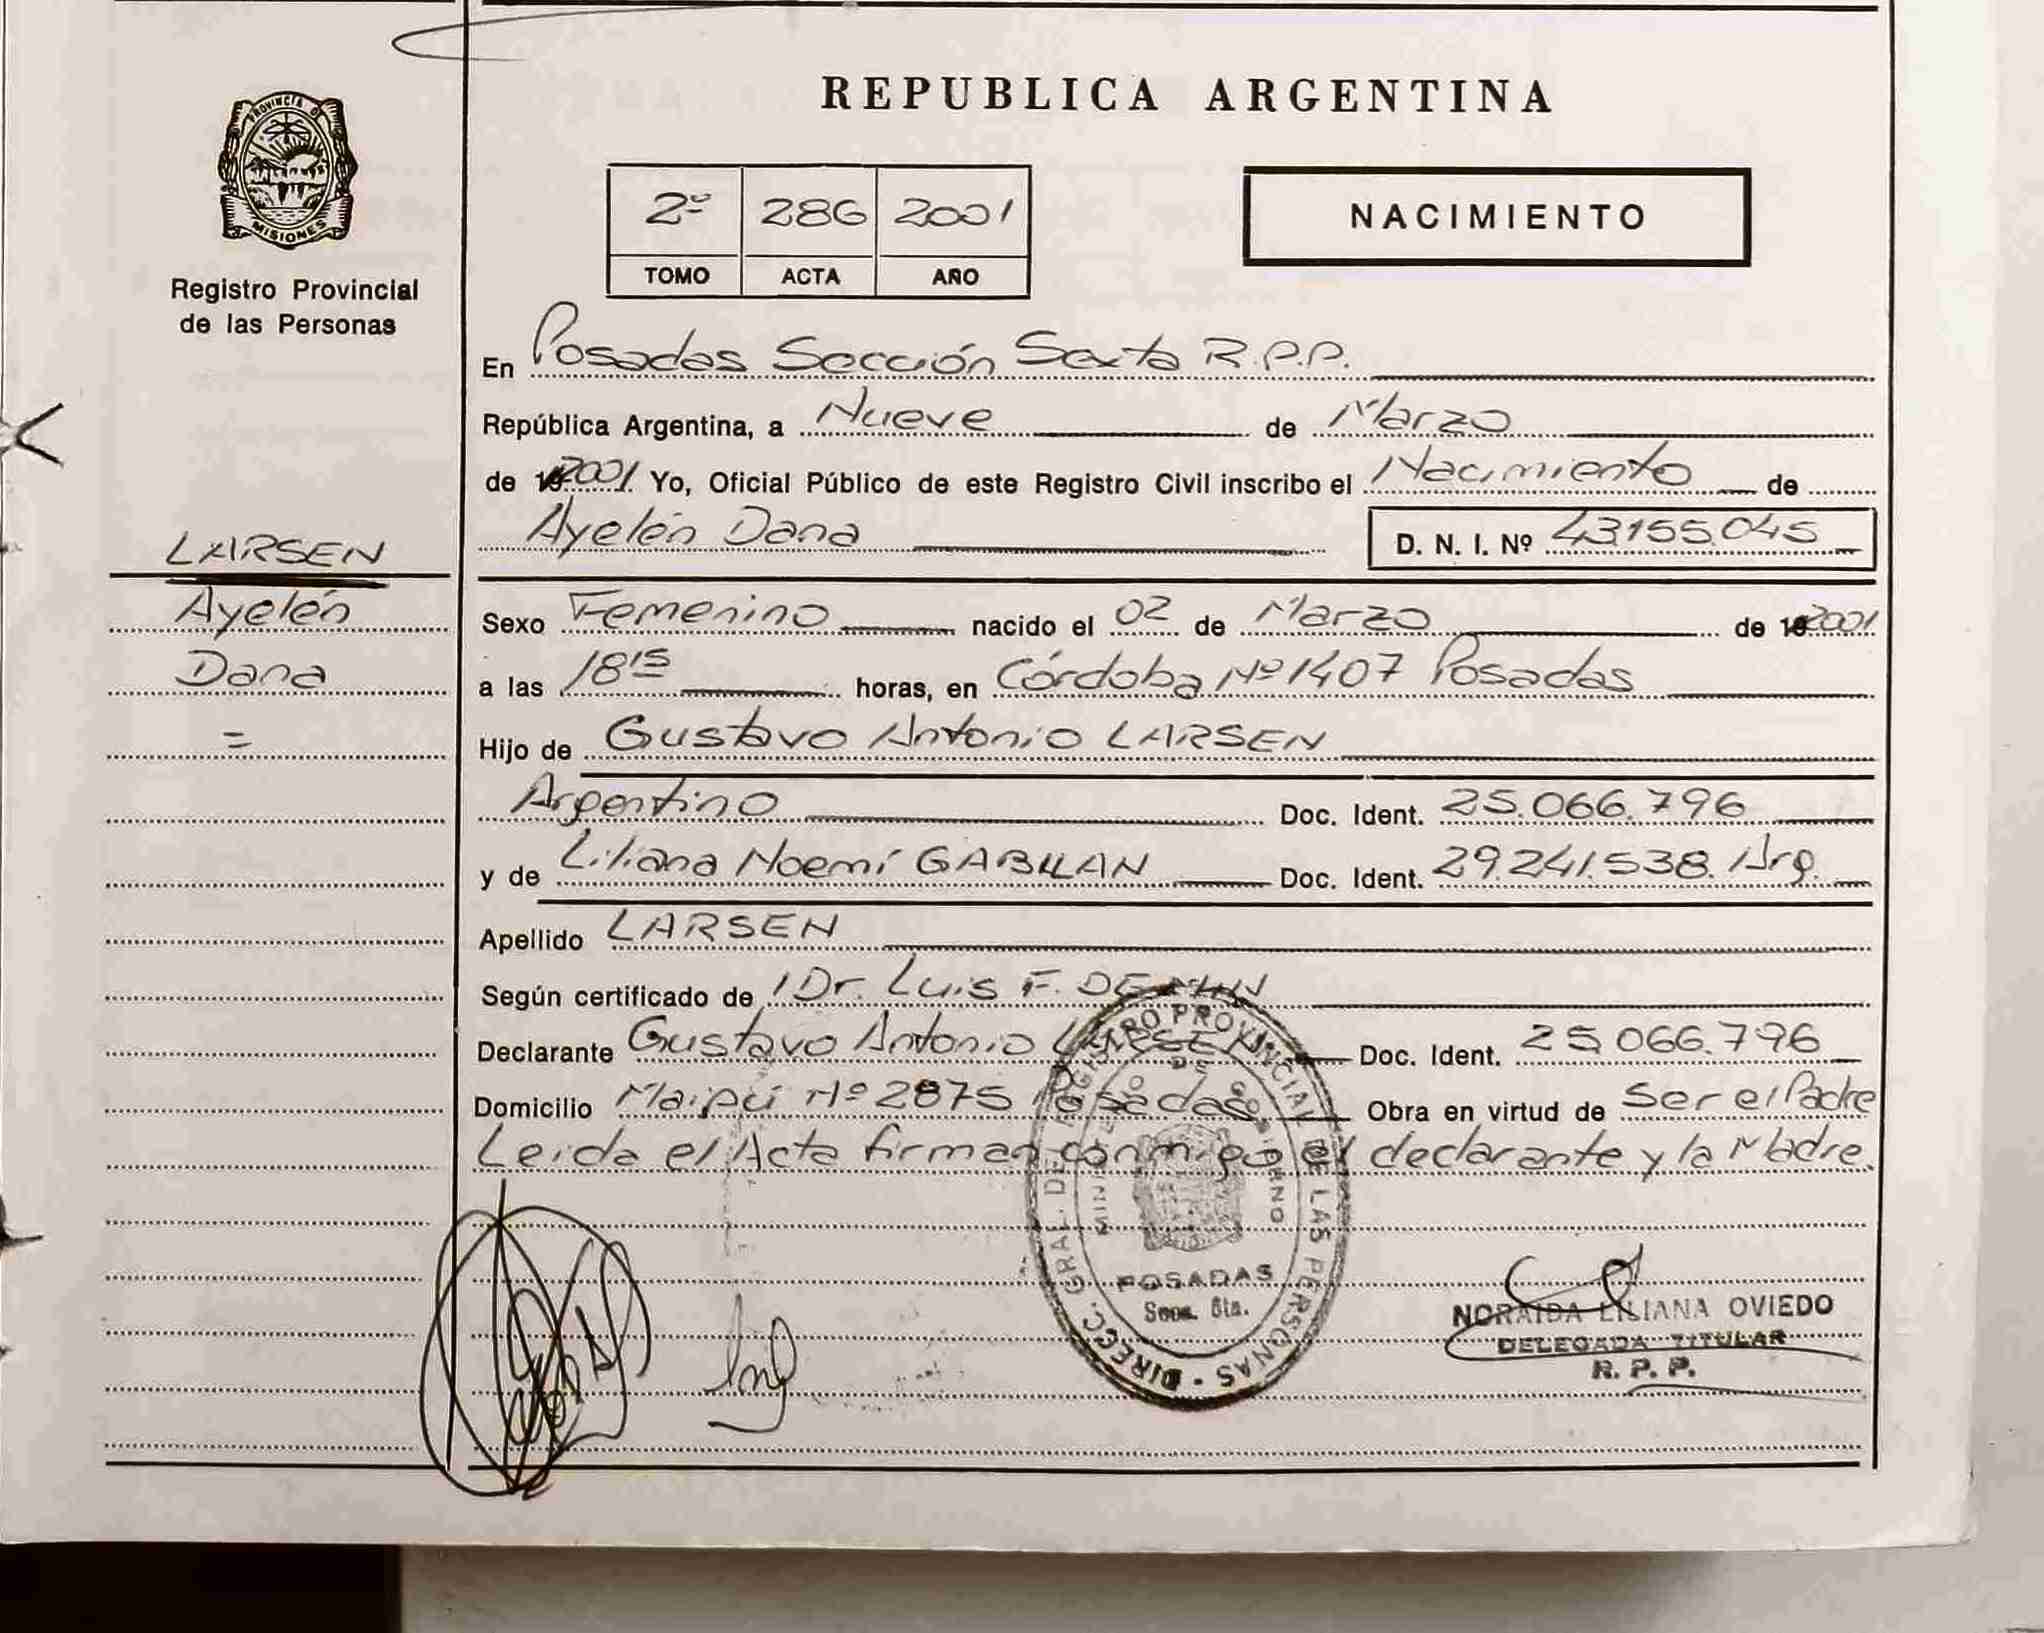 REPUBLICA ARGENTINA
PROVINCIA D
MISIONES
Registro Provincial
de las Personas
2º 286 2001
TOMO ACTA AÑO
NACIMIENTO
En Posadas Sección Sexta R.P.P.
República Argentina, a Nueve de Marzo
de 2001 Yo, Oficial Público de este Registro Civil inscribo el Nacimiento de
Ayelén Dana D. N. I. Nº 43155.045
LARSEN
Ayelén
Dana
=
Sexo Femenino nacido el 02 de Marzo de 2001
a las 18 15 horas, en Córdoba Nº 1407 Posadas
Hijo de Gustavo Antonio LARSEN
Argentino Doc. Ident. 25.066.796
y de Liliana Noemí Doc. Ident. 29.241.538. Arg.
Apellido LARSEN
Según certificado de Dr. Luis F.
Declarante Gustavo Antonio LARSEN Doc. Ident. 25 066.796
Domicilio Maipú Nº 2875 Posadas Obra en virtud de Ser el Padre
Leida el Acta firman conmigo el declarante y la Madre.
DIRECC. GRAL. DE REGISTRO PROVINCIAL DE LAS PERSONAS
MINISTERIO DE GOBIERNO
POSADAS
Secc. 6ta.
NORAIDA LILIANA OVIEDO
DELEGADA TITULAR
R. P. P.